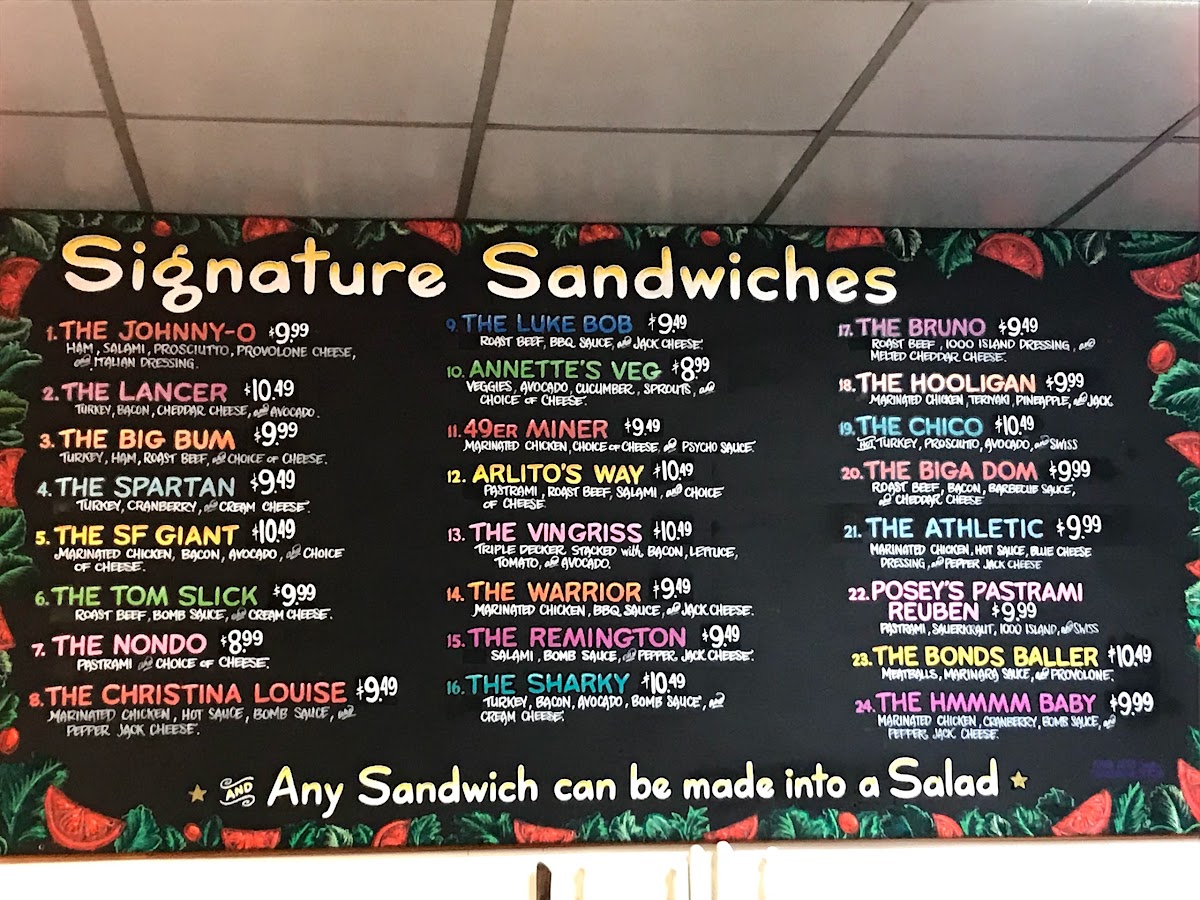 Signature Sandwiches
1. THE JOHNNY-O $9.99
HAM, SALAMI, PROSCIUTTO, PROVOLONE CHEESE,
AND ITALIAN DRESSING.
2. THE LANCER $10.49
TURKEY, BACON, CHEDDAR CHEESE, AND AVOCADO.
3. THE BIG BUM $9.99
TURKEY, HAM, ROAST BEEF, AND CHOICE OF CHEESE.
4. THE SPARTAN $9.49
TURKEY, CRANBERRY, AND CREAM CHEESE.
5. THE SF GIANT $10.49
MARINATED CHICKEN, BACON, AVOCADO, AND CHOICE
OF CHEESE.
6. THE TOM SLICK $9.99
ROAST BEEF, BOMB SAUCE, AND CREAM CHEESE.
7. THE NONDO $8.99
PASTRAMI AND CHOICE OF CHEESE.
8. THE CHRISTINA LOUISE $9.49
MARINATED CHICKEN, HOT SAUCE, BOMB SAUCE, AND
PEPPER JACK CHEESE.
9. THE LUKE BOB $9.49
ROAST BEEF, BBQ SAUCE, AND JACK CHEESE.
10. ANNETTE'S VEG $8.99
VEGGIES, AVOCADO, CUCUMBER, SPROUTS, AND
CHOICE OF CHEESE.
11. 49ER MINER $9.49
MARINATED CHICKEN, CHOICE OF CHEESE, AND PSYCHO SAUCE.
12. ARLITO'S WAY $10.49
PASTRAMI, ROAST BEEF, SALAMI, AND CHOICE
OF CHEESE.
13. THE VINGRISS $10.49
TRIPLE DECKER, STACKED with BACON, LETTUCE,
TOMATO, AND AVOCADO.
14. THE WARRIOR $9.49
MARINATED CHICKEN, BBQ SAUCE, AND JACK CHEESE.
15. THE REMINGTON $9.49
SALAMI, BOMB SAUCE, AND PEPPER JACK CHEESE.
16. THE SHARKY $10.49
TURKEY, BACON, AVOCADO, BOMB SAUCE, AND
CREAM CHEESE.
17. THE BRUNO $9.49
ROAST BEEF, 1000 ISLAND DRESSING, AND
MELTED CHEDDAR CHEESE.
18. THE HOOLIGAN $9.99
MARINATED CHICKEN, TERIYAKI, PINEAPPLE, AND JACK
19. THE CHICO $10.49
HOT TURKEY, PROSCIUTTO, AVOCADO, AND SWISS
20. THE BIGA DOM $9.99
ROAST BEEF, BACON, BARBECUE SAUCE,
AND CHEDDAR CHEESE
21. THE ATHLETIC $9.99
MARINATED CHICKEN, HOT SAUCE, BLUE CHEESE
DRESSING, AND PEPPER JACK CHEESE
22. POSEY'S PASTRAMI
REUBEN $9.99
PASTRAMI, SAUERKRAUT, 1000 ISLAND, AND SWISS
23. THE BONDS BALLER $10.49
MEATBALLS, MARINARA SAUCE, AND PROVOLONE.
24. THE HMMMM BABY $9.99
MARINATED CHICKEN, CRANBERRY, BOMB SAUCE, AND
PEPPER JACK CHEESE.
AND Any Sandwich can be made into a Salad